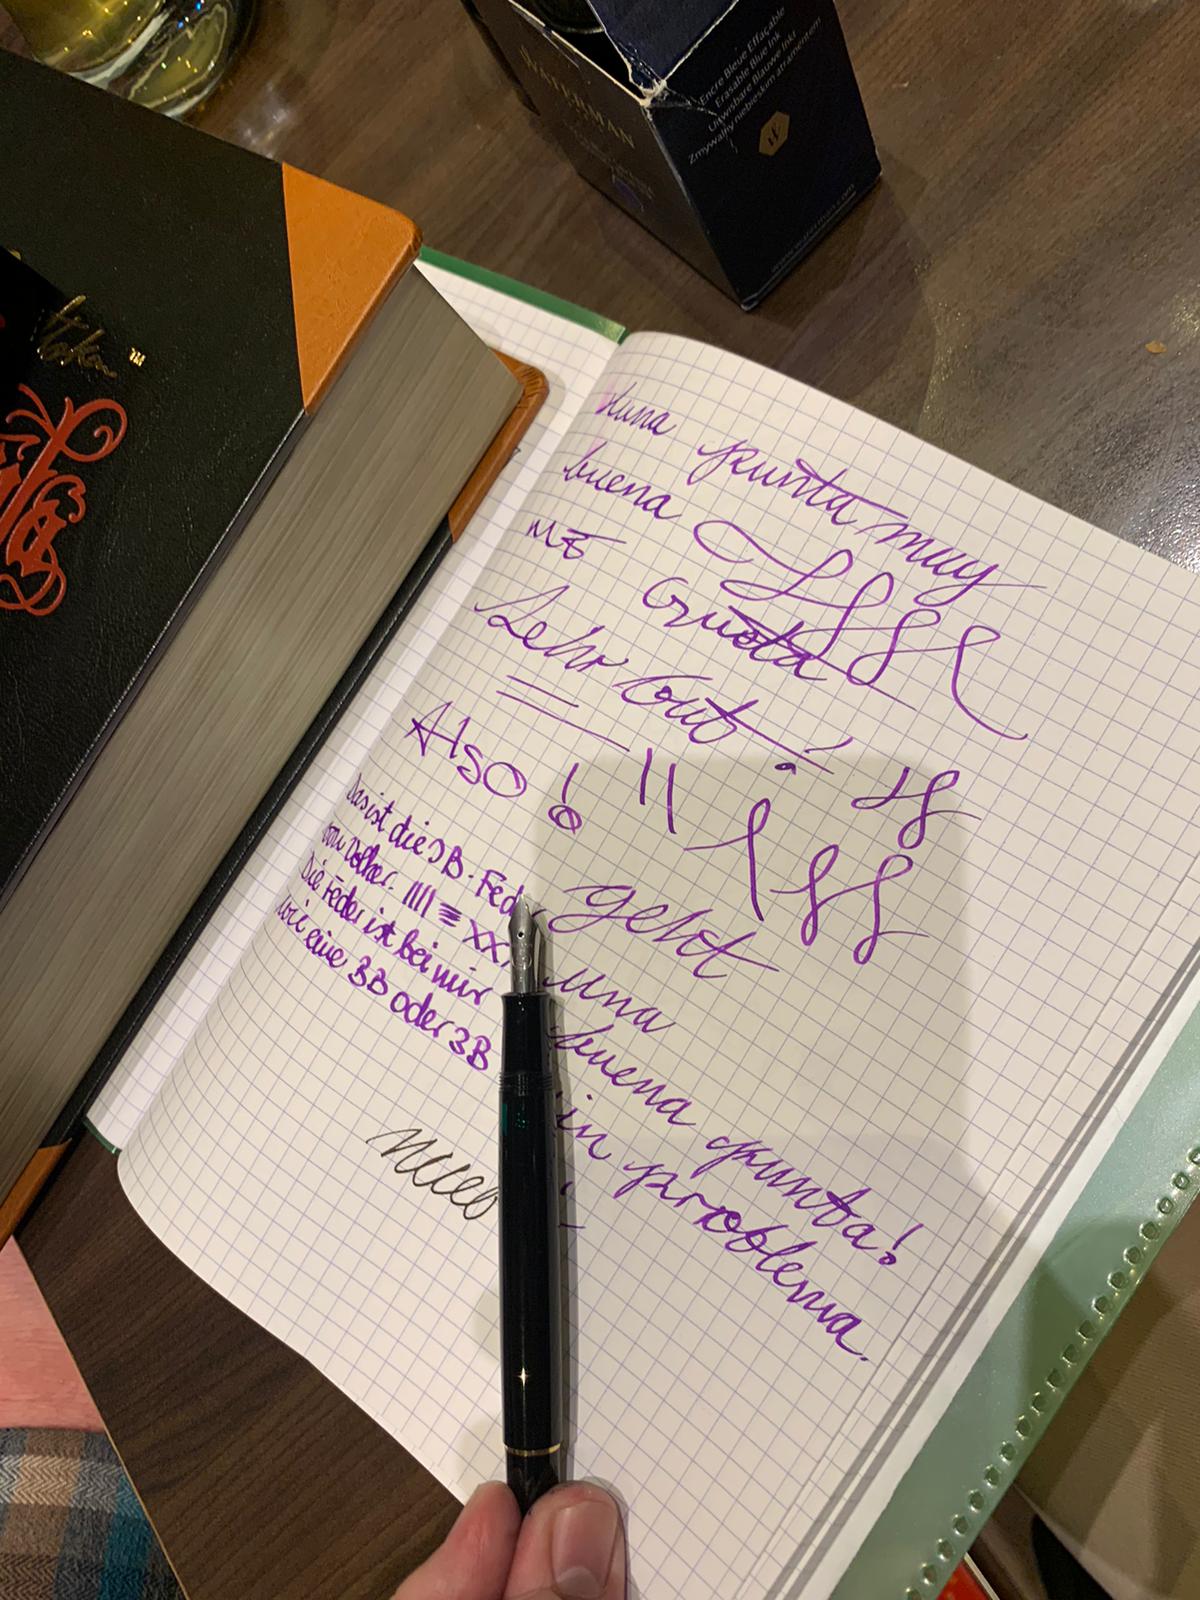 WATERMAN
Encre Bleue Effaçable
Erasable Blue Ink
Uitwisbare Blauwe Inkt
Zmywalny niebieskim atramentem
www.waterman.com
TM
una punta muy
buena
ME Gusta
Sehr Gut!
Also!
geht
Das ist die 3B-Feder
von Volker. IIII ≡ XX
Die Feder ist bei mir
wie eine BB oder 3B
una
buena punta!
sin problema.